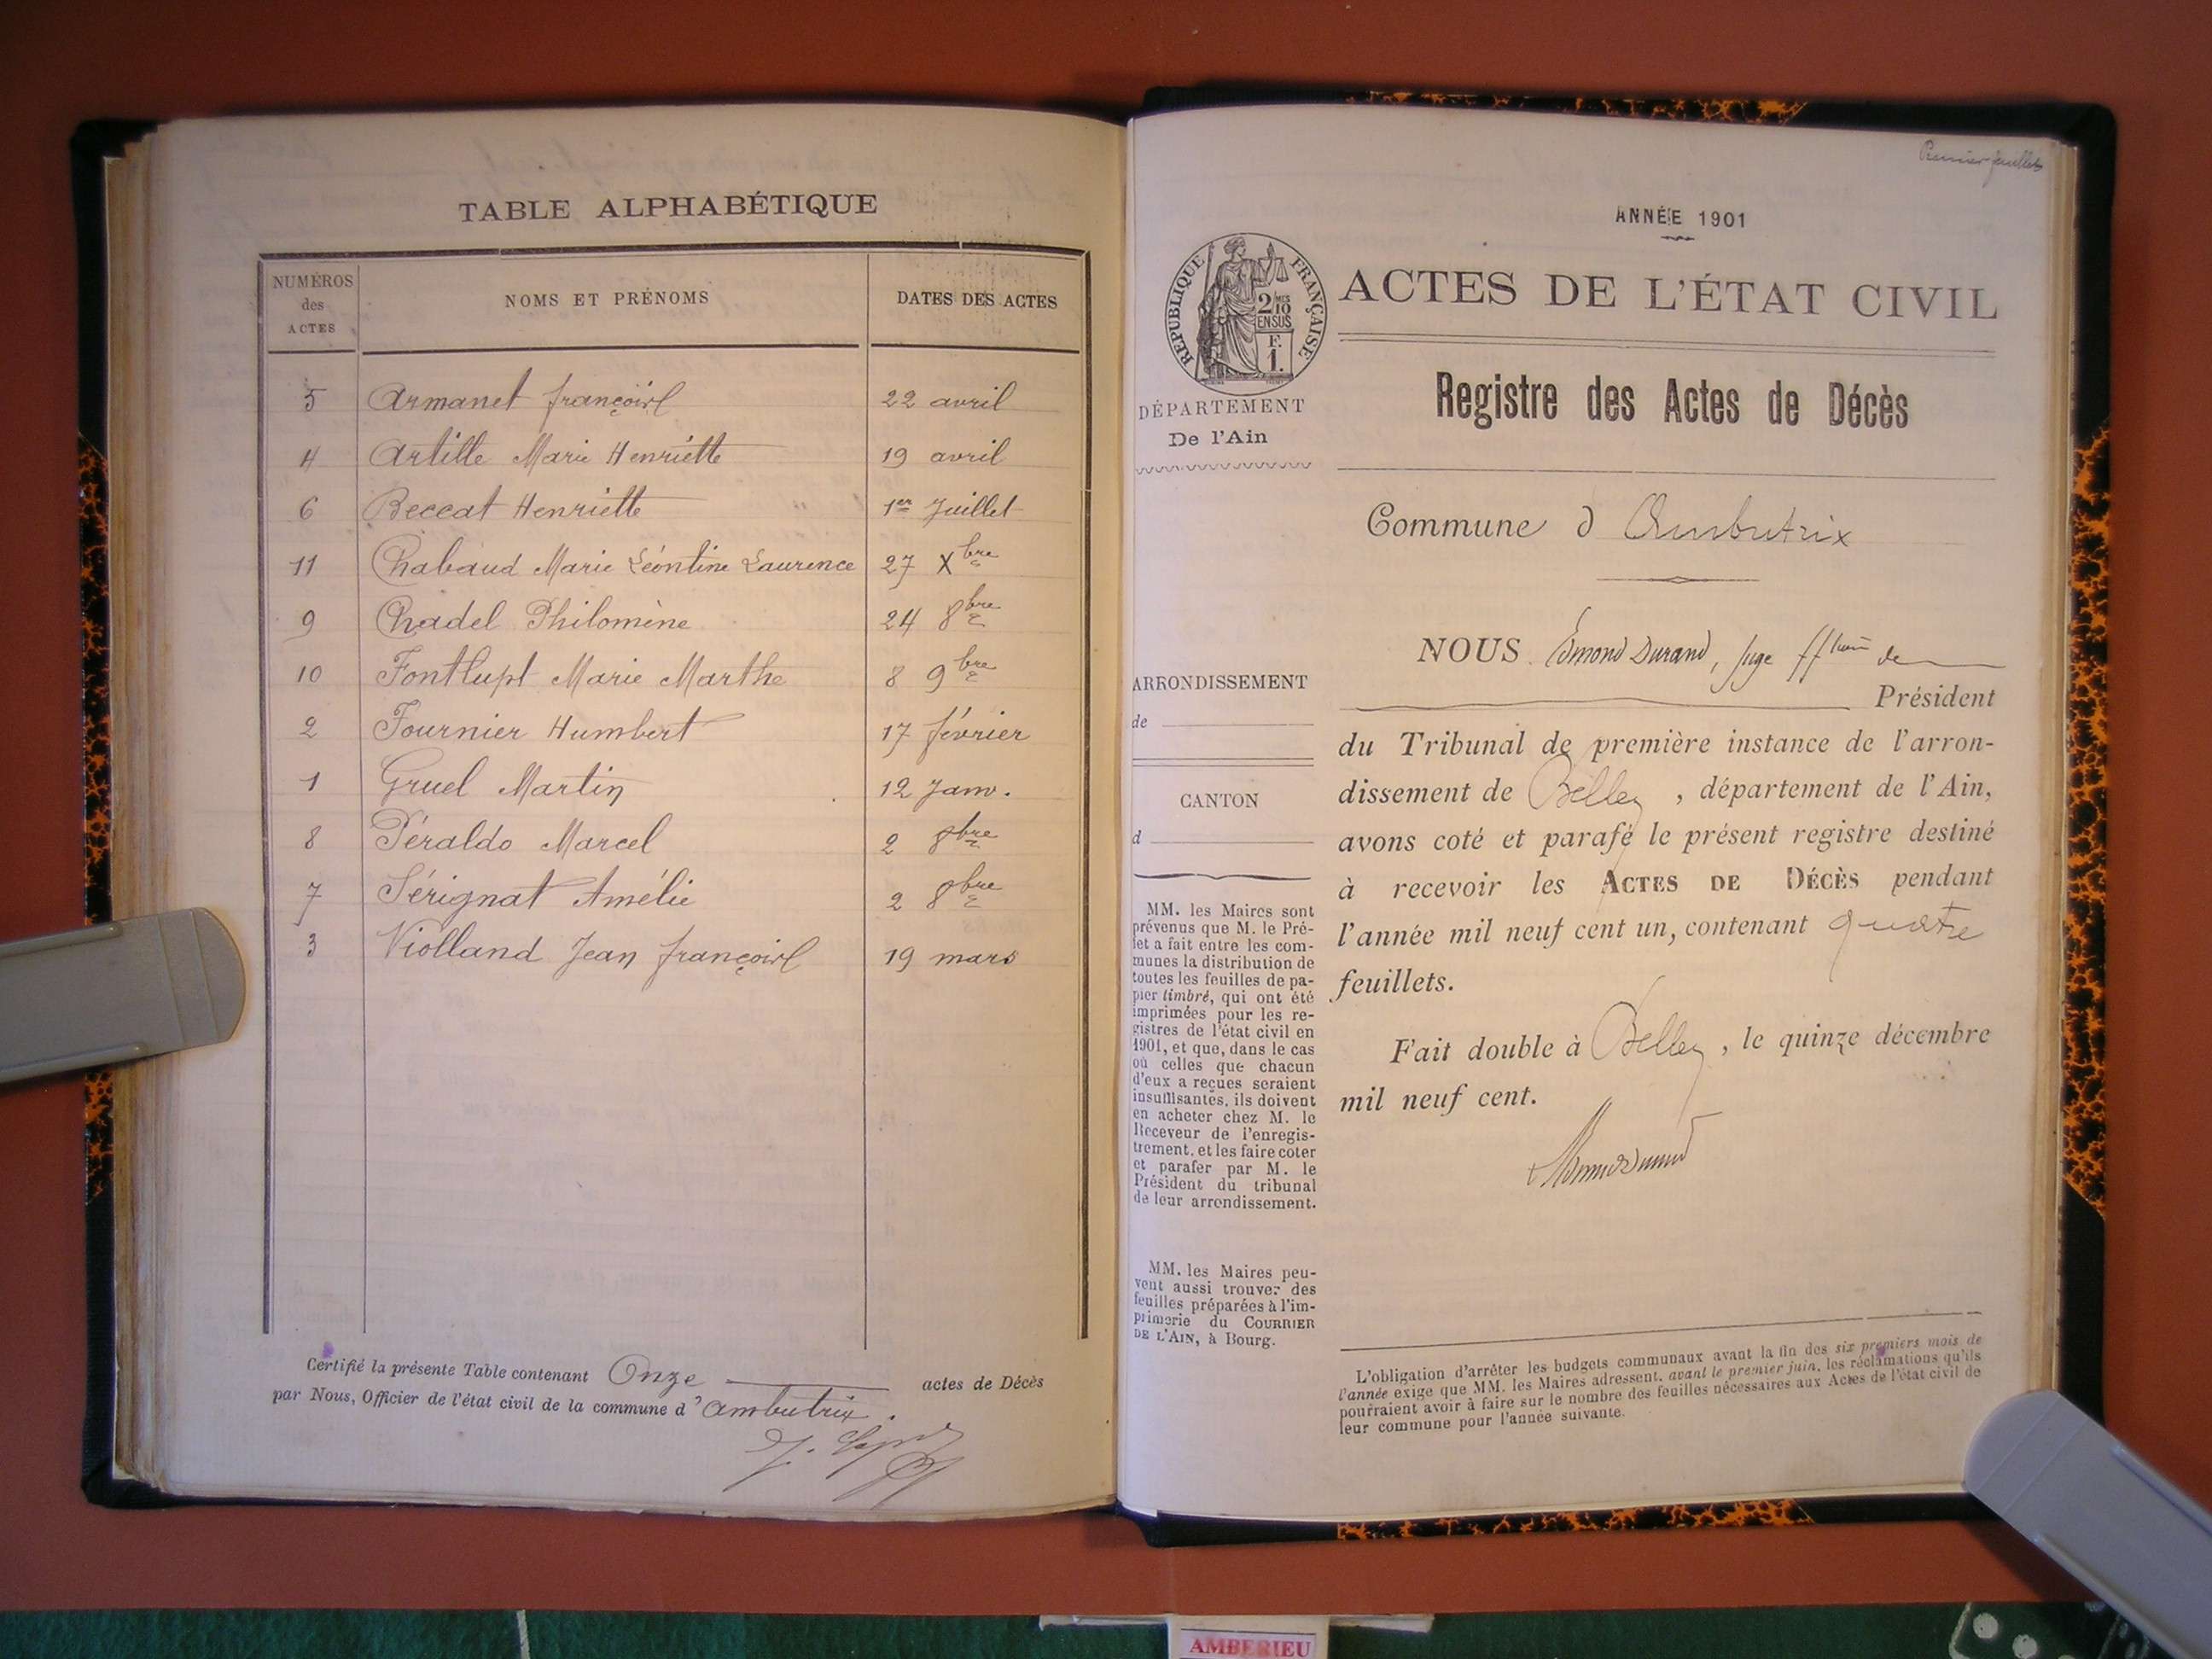 TABLE ALPHABÉTIQUE
NUMÉROS
des
ACTES
NOMS ET PRÉNOMS
DATES DES ACTES
5 Armanet françois 22 avril
4 Artille Marie Henriette 19 avril
6 Beccat Henriette 1er Juillet
11 Chabaud Marie Léontine Laurence 27 Xbre
9 Chadel Philomène 24 8bre
10 Fontlupt Marie Marthe 8 9bre
2 Fournier Humbert 17 février
1 Gruel Martin 12 Janv.
8 Péraldo Marcel 2 8bre
7 Sérignat Amélie 2 8bre
3 Violland Jean françois 19 mars
Certifié la présente Table contenant Onze actes de Décès
par Nous, Officier de l'état civil de la commune d'Ambutrix.
Premier feuillet
ANNÉE 1901
RÉPUBLIQUE FRANÇAISE
2/10
EN SUS
F.
1.
ACTES DE L'ÉTAT CIVIL
DÉPARTEMENT
De l'Ain
Registre des Actes de Décès
Commune d Ambutrix
NOUS Edmond Durand, juge de
Président
du Tribunal de première instance de l'arron-
dissement de Belley, département de l'Ain,
avons coté et parafé le présent registre destiné
à recevoir les ACTES DE DÉCÈS pendant
l'année mil neuf cent un, contenant quatre
feuillets.
Fait double à Belley, le quinze décembre
mil neuf cent.
ARRONDISSEMENT
de
CANTON
d
MM. les Maires sont
prévenus que M. le Pré-
fet a fait entre les com-
munes la distribution de
toutes les feuilles de pa-
pier timbré, qui ont été
imprimées pour les re-
gistres de l'état civil en
1901, et que, dans le cas
où celles que chacun
d'eux a reçues seraient
insuffisantes, ils doivent
en acheter chez M. le
Receveur de l'enregis-
trement, et les faire coter
et parafer par M. le
Président du tribunal
de leur arrondissement.
MM. les Maires peu-
vent aussi trouver des
feuilles préparées à l'im-
primerie du COURRIER
DE L'AIN, à Bourg.
L'obligation d'arrêter les budgets communaux avant la fin des six premiers mois de
l'année exige que MM. les Maires adressent, avant le premier juin, les réclamations qu'ils
pourraient avoir à faire sur le nombre des feuilles nécessaires aux Actes de l'état civil de
leur commune pour l'année suivante.
AMBERIEU